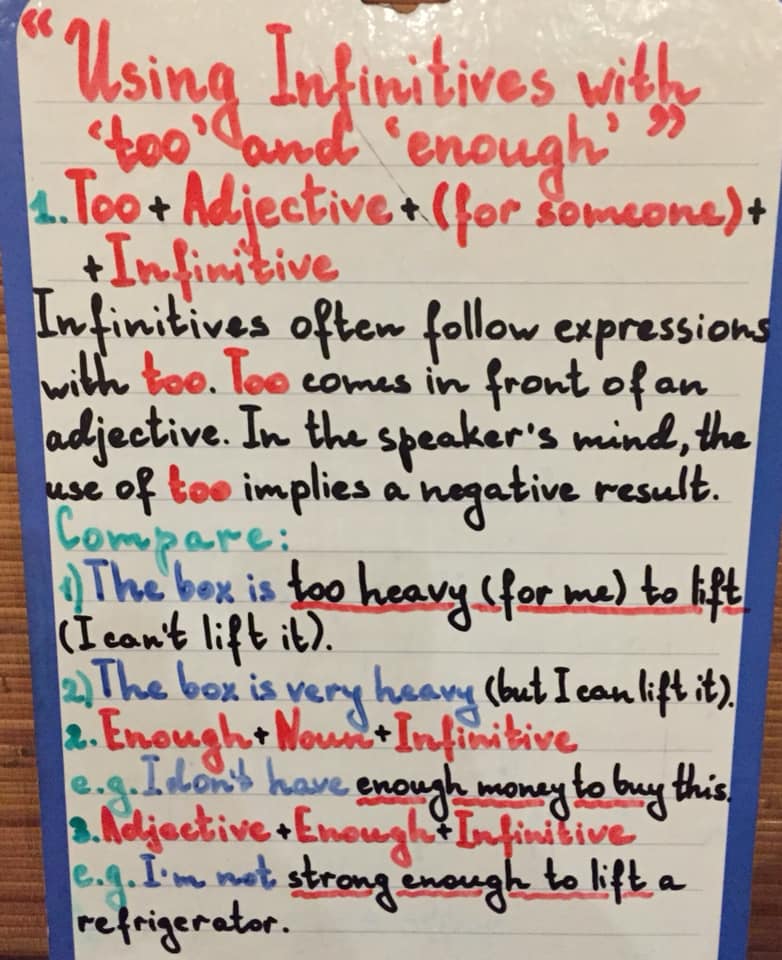 “Using Infinitives with
‘too’ and ‘enough’”
1. Too + Adjective + (for someone) +
+ Infinitive
Infinitives often follow expressions
with too. Too comes in front of an
adjective. In the speaker's mind, the
use of too implies a negative result.
Compare:
1) The box is too heavy (for me) to lift
(I can't lift it).
2) The box is very heavy (but I can lift it).
2. Enough + Noun + Infinitive
e.g. I don't have enough money to buy this.
3. Adjective + Enough + Infinitive
e.g. I'm not strong enough to lift a
refrigerator.